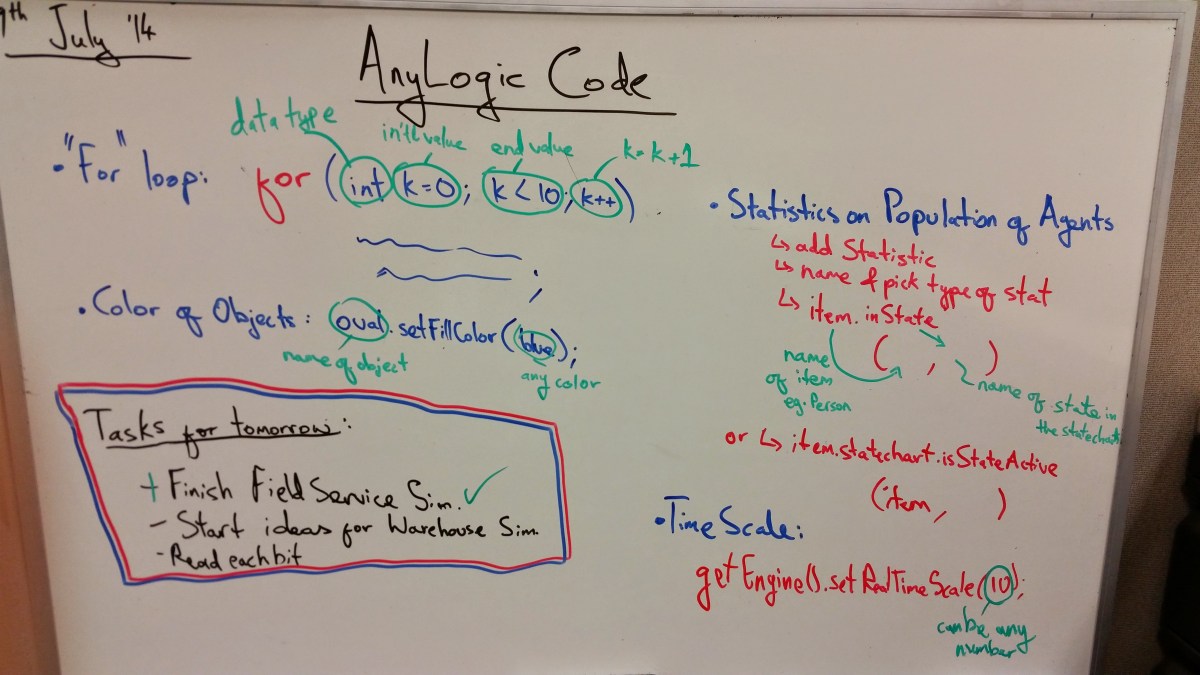 9th July '14
AnyLogic Code
data type
int'l value
end value
k = k+1
• "For" loop: for (int k=0; k<10; k++)
;
• Color of Objects: oval.setFillColor(blue);
name of object
any color
Tasks for tomorrow:
+ Finish Field Service Sim. ✓
- Start ideas for Warehouse Sim.
- Read each bit
• Statistics on Population of Agents
↳ add Statistic
↳ name & pick type of stat
↳ item.inState
( , )
name
of item
eg. Person
name of state in
the statechart
or ↳ item.statechart.isStateActive
(item, )
• Time Scale:
getEngine().setRealTimeScale(10);
can be any
number